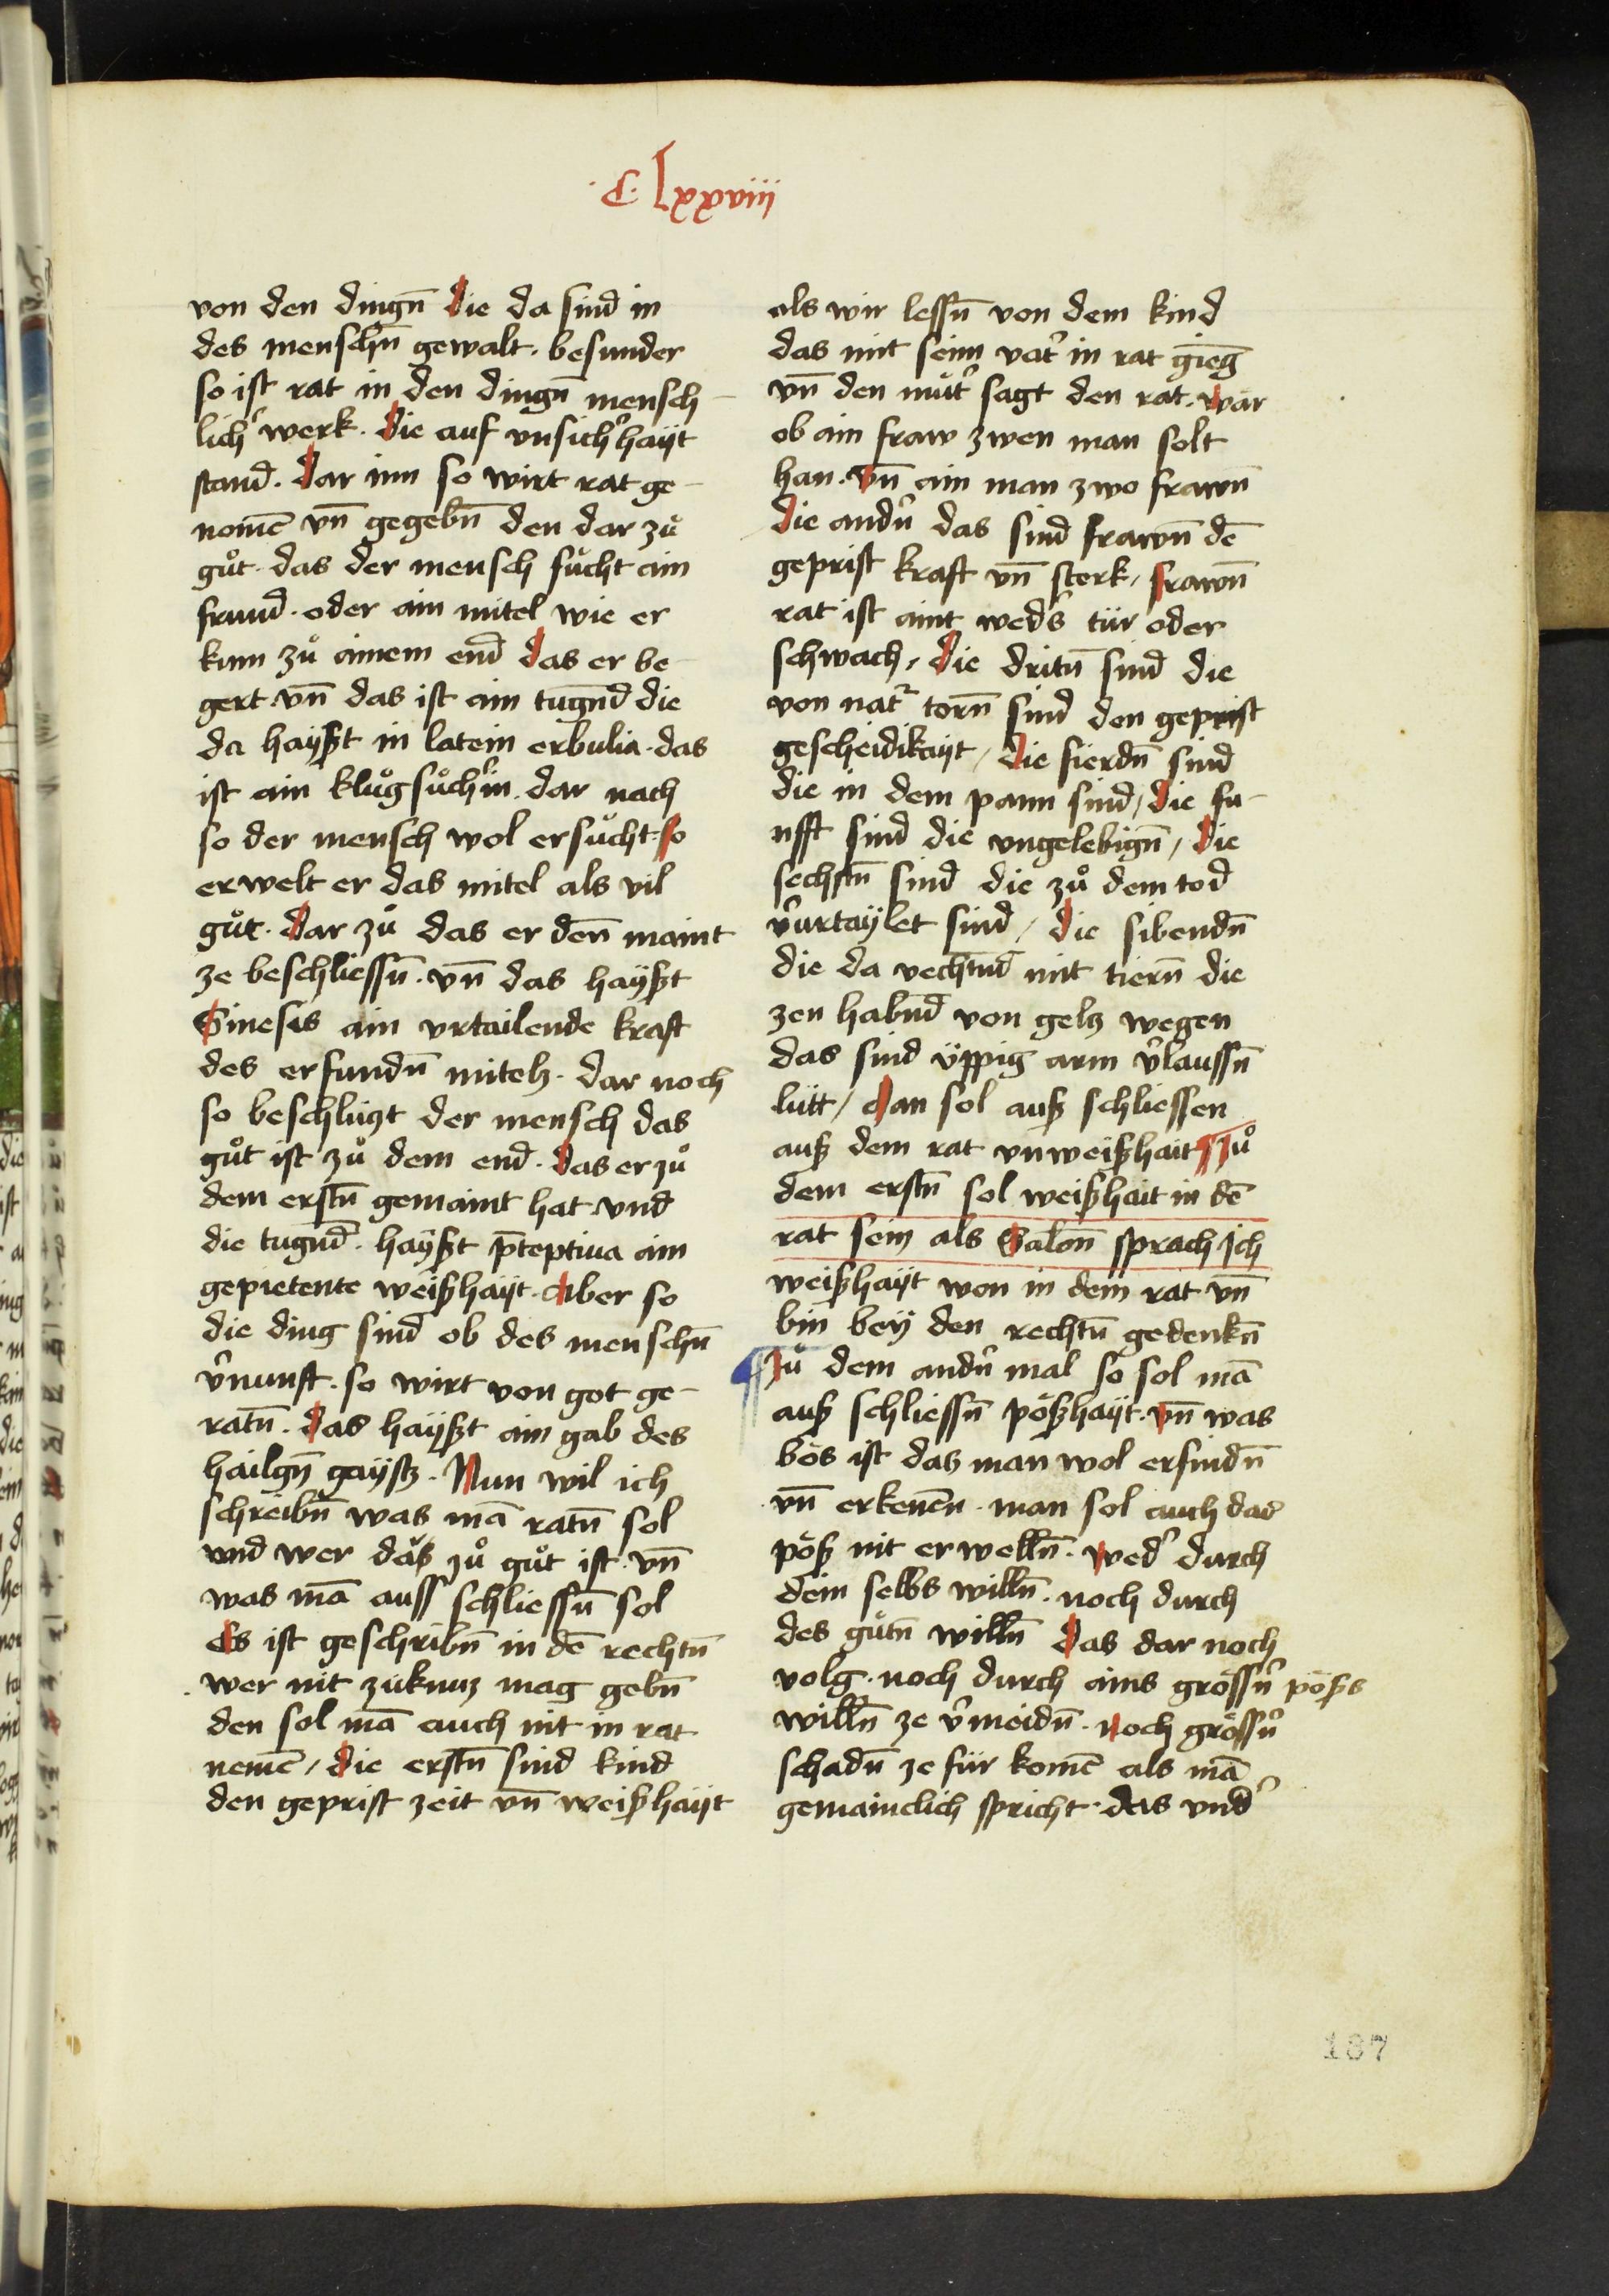 .C. lxxxviiii
von den dingn̄ Die da sind in
des menschn̄ gewalt. besunder
so ist rat in den dingn̄ mensch-
lich᷑ werk. Die auf vnsich᷑hayt
stand. Dar inn so wirt rat ge-
nomē vn̄ gegebn̄ den dar zů
gůt. das der mensch sůcht ain
frund. oder ain mitel wie er
kum zů ainem end Das er be-
gert. vn̄ das ist ain tugn̄d die
da hayßt in latein erbulia. das
ist ain klůgsůch᷑in. dar nach
so der mensch wol ersůcht. So
erwelt er das mitel als vil
gůt. Dar zů das er den̄ maint
ze beschliessn̄. vn̄ das hayßt
Sinesis ain vrtailende kraft
des erfundn̄ mitelz. dar noch
so beschlüzt der mensch das
gůt ist zů dem end. Das er zů
dem erstn̄ gemaint hat vnd
die tugn̄d. hayßt p̄ceptiua ain
gepietente weißhayt. Aber so
die ding sind ob des menschn̄
v᷑nunft. so wirt von got ge-
ratn̄. Das hayßt ain gab des
hailgn̄ gaystz. Nun wil ich
schreibn̄ was mā ratn̄ sol
vnd wer däs zů gůt ist. vn̄
was mā auss schliessn̄ sol
Es ist geschribn̄ in dē rechtn̄
wer nit zukunz mag gebn̄
den sol mā auch nit in rat
nemē / Die erstn̄ sind kind
den geprist zeit vn̄ weißhayt
als wir lessn̄ von dem kind
das mit seim vat᷑ in rat gieng
vn̄ den můt᷑ sagt den rat. wär
ob ain fraw zwen man solt
han. Vn̄ ain man zwo frawn̄
Die andn᷑ das sind frawn̄ dē
geprist kraft vn̄ sterk / frawn̄
rat ist aint wed᷑s tür oder
schwach / Die dritn̄ sind die
von nat᷑ torn̄ sind den geprist
gescheidikayt / Die fierdn̄ sind
die in dem pann sind / Die fu-
nfft sind die vngelebign̄ / Die
sechstn̄ sind die zů dem tod
v᷑urtaylet sind / Die sibendn̄
die da vechtn̄d mit tiern̄ die
zen habn̄d von gelz wegen
das sind üppig arm v᷑laussn̄
lütt / Man sol auß schliessen
auß dem rat vnweißhait ¶ Zů
dem erstn̄ sol weißhait in dē
rat sein als Salon̄ sprach Ich
weißhayt won in dem rat vn̄
bin bey den rechtn̄ gedenkn̄
¶ Zů dem andn᷑ mal so sol mā
auß schliessn̄ pößhayt. Vn̄ was
bös ist das man wol erfindn̄
vn̄ erkenēn. man sol auch das
pöß nit erwelln̄. Wed᷑ durch
dein selbs willn̄. noch durch
des gůtn̄ willn̄ Das dar noch
volg. noch durch ains grössn᷑ pößs
willn̄ ze v᷑meidn̄. Noch grössn᷑
schadn̄ ze für komē als mā
gemainclich spricht. das vnd᷑
187